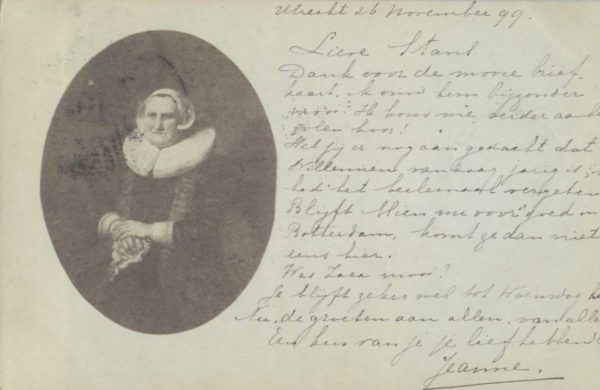 Utrecht 26 November 99.
Lieve Stans.
Dank voor de mooie brief-
kaart, ik vind hem bijzonder
mooi! Ik houd me verder aan
Heb jij er nog aan gedacht dat
Willemien vandaag jarig is
had het heelemaal vergeten
Blijft Mien nu voor goed in
Rotterdam, komt ze dan niet
eens hier.
Was Zaza mooi?
Je blijft zeker wel tot Woensdag
Nu, de groeten aan allen, van allen
Een kus van je je liefhebbende
Jeanne.